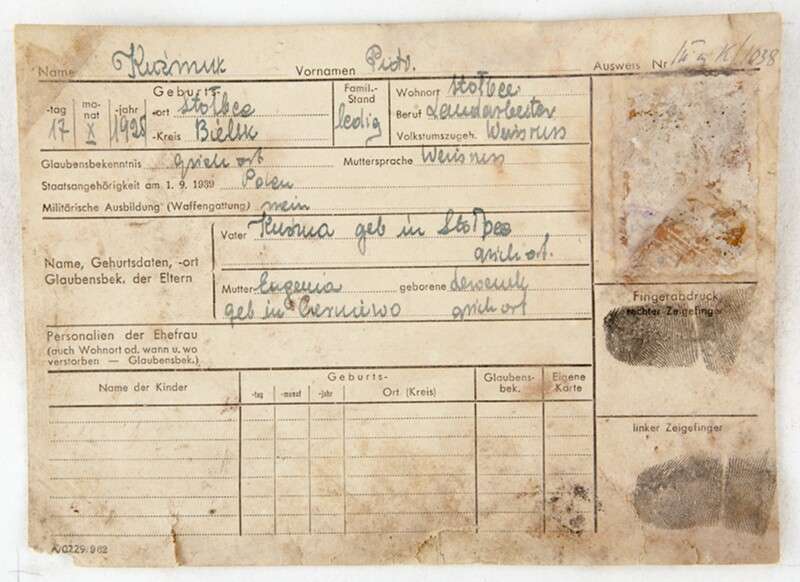 Name Kuźmuk Vornamen Piotr. Ausweis Nr /1038
Geburts-
-tag mo-nat -jahr -ort Stołbce
17 X 1928 -Kreis Bielsk
Famil.-Stand
ledig
Wohnort Stołbce
Beruf Landarbeiter
Volkstumszugeh. Weisruss
Glaubensbekenntnis griech ort Muttersprache Weisruss
Staatsangehörigkeit am 1. 9. 1939 Polen
Militärische Ausbildung (Waffengattung) nein
Name, Gehurtsdaten, -ort
Glaubensbek. der Eltern
Vater Kuźma geb in Stołbce
griech ort.
Mutter Eugenia geborene
geb in griech ort
Personalien der Ehefrau
(auch Wohnort od. wann u. wo
verstorben — Glaubensbek.)
Name der Kinder
Geburts-
-tag -monat -jahr Ort (Kreis)
Glaubens-
bek.
Eigene
Karte
Fingerabdruck
rechter Zeigefinger
linker Zeigefinger
A/0229/962